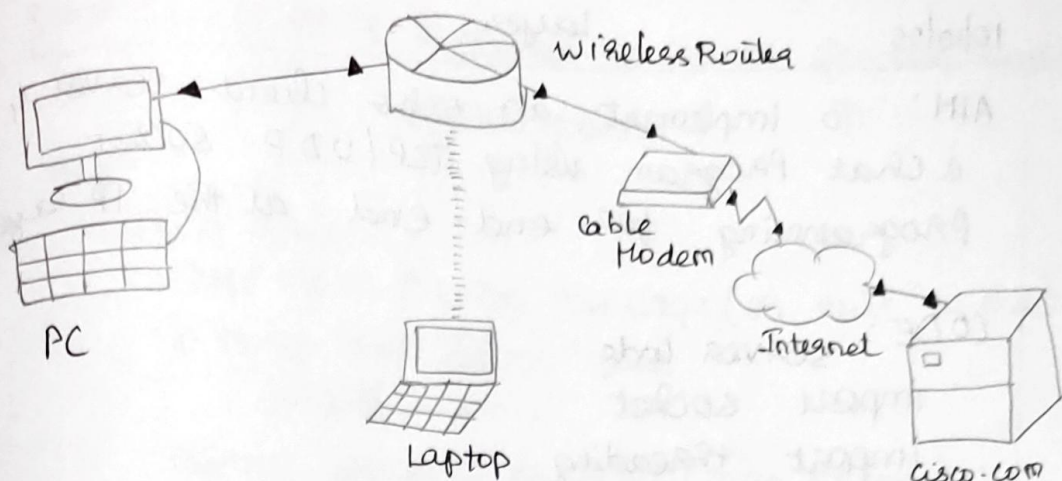 Wireless Router
Cable
Modem
PC
Internet
Laptop
cisco.com